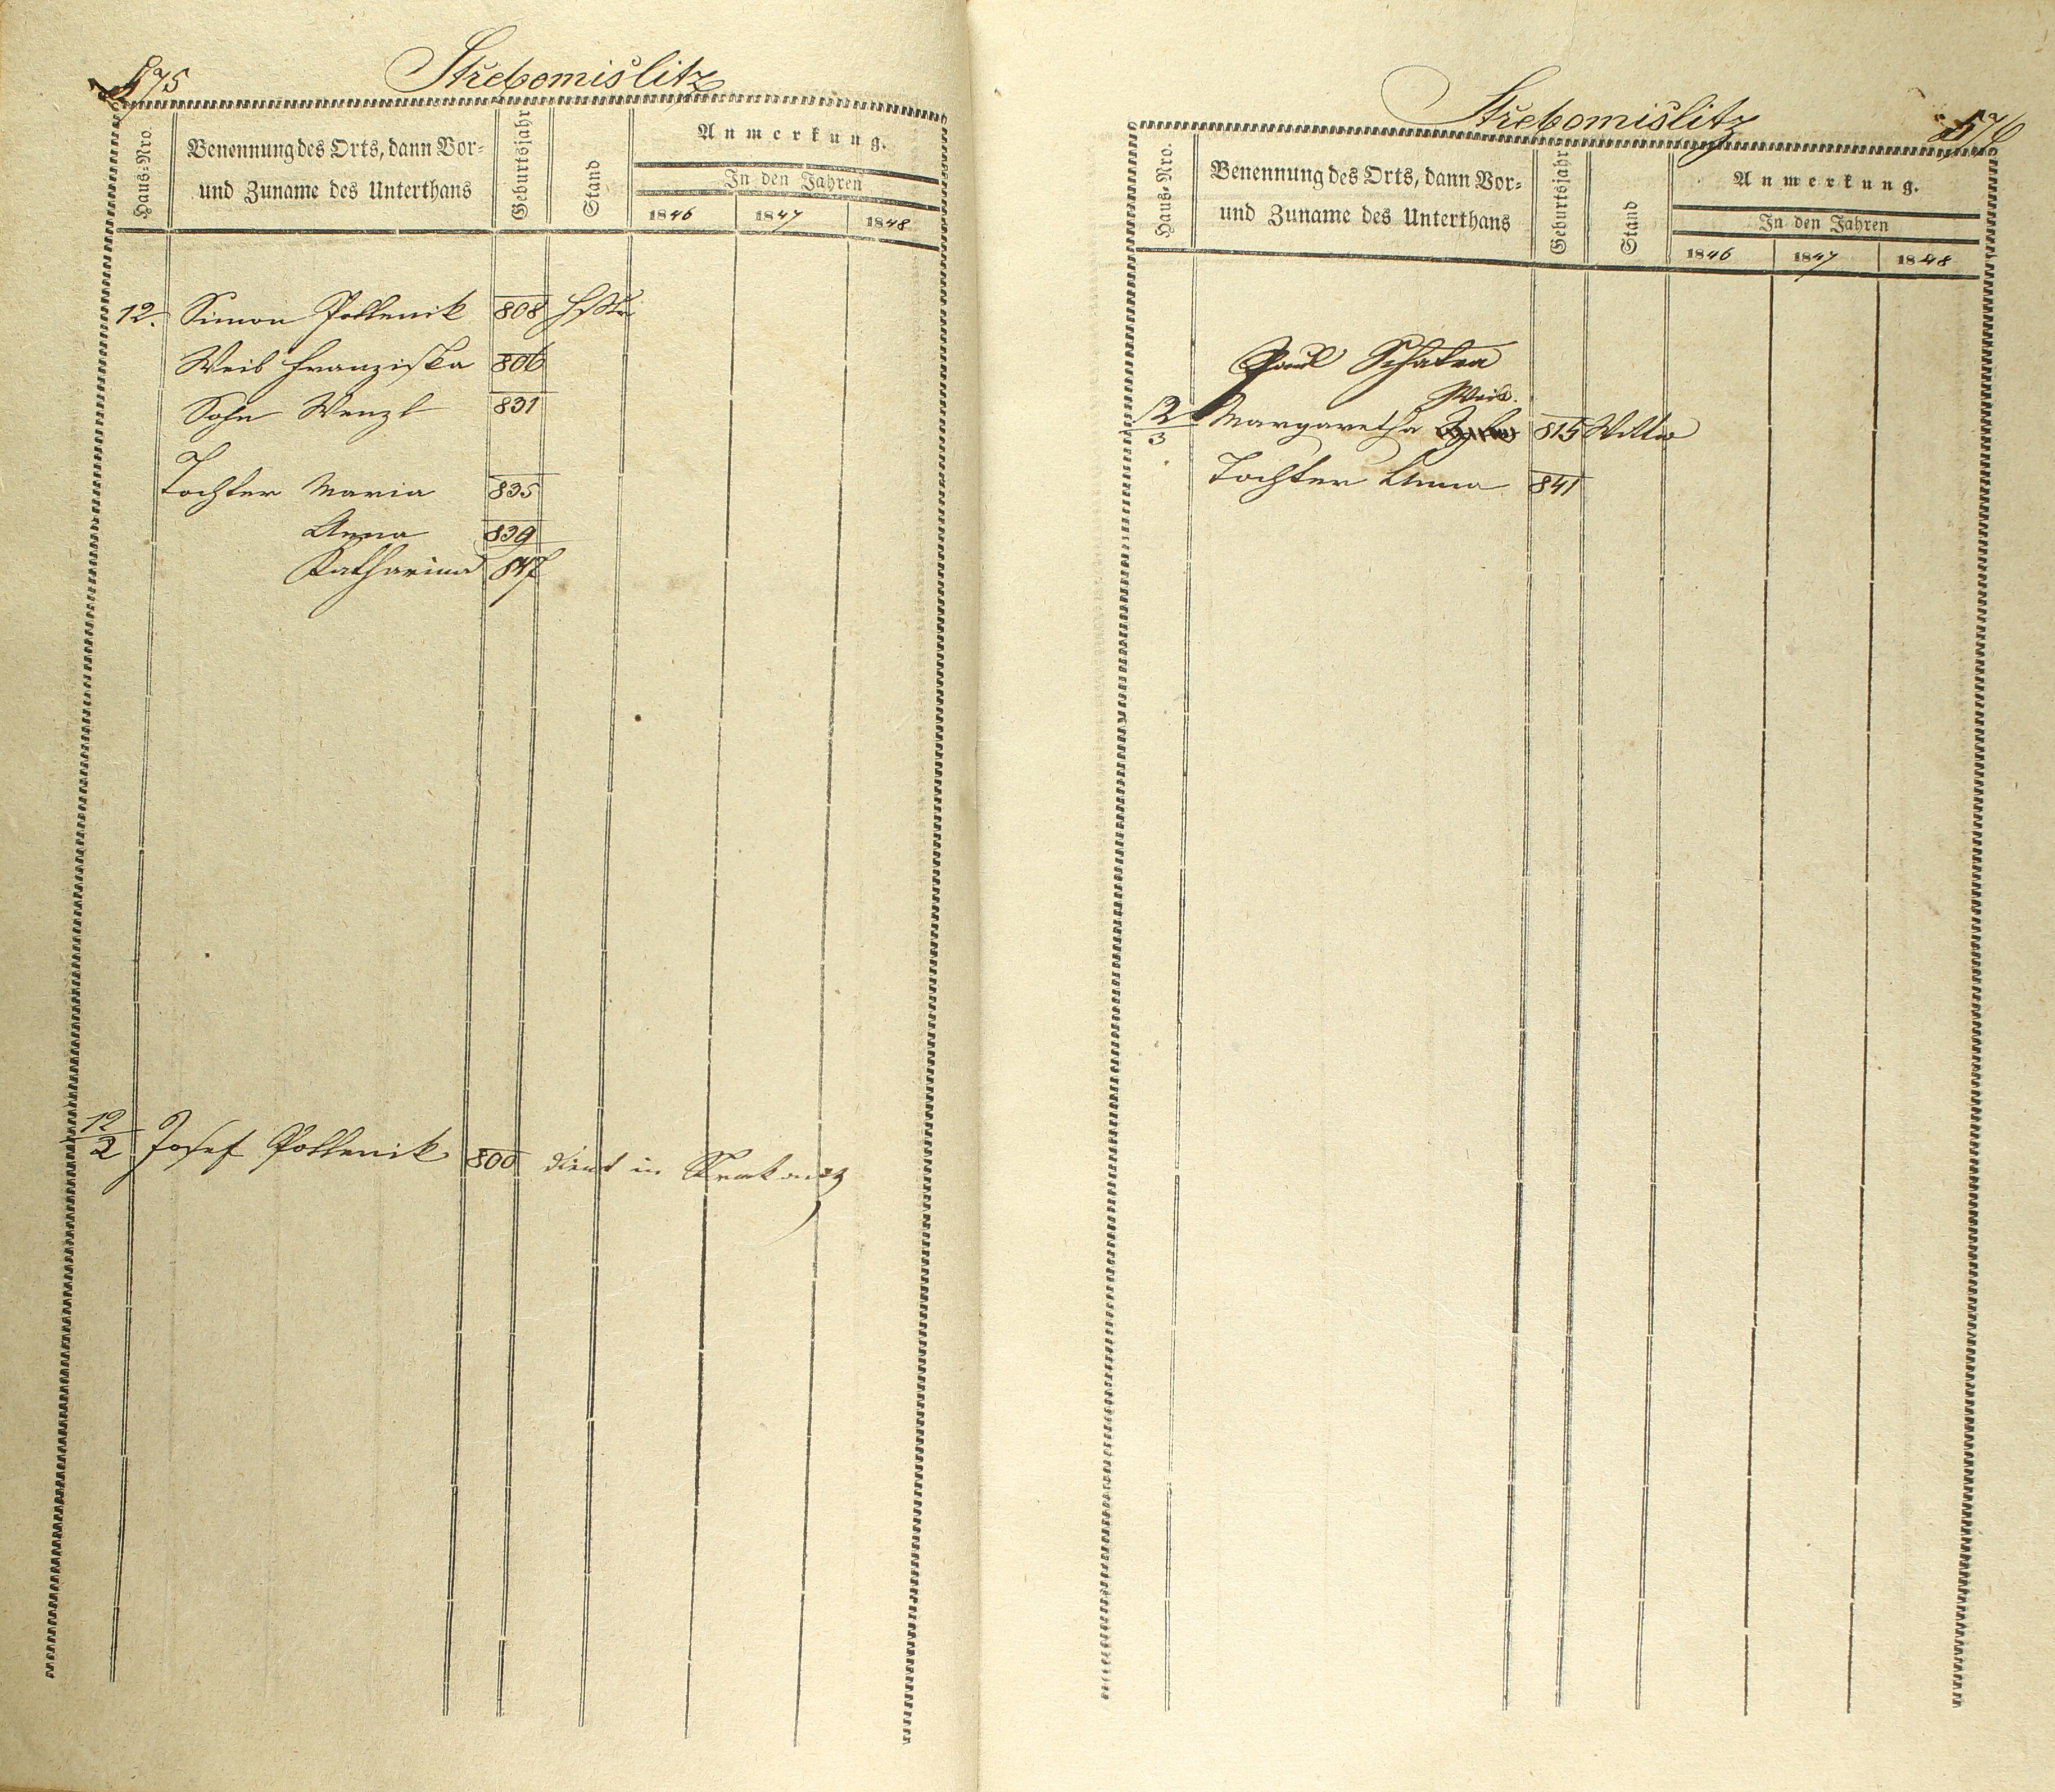 575
Střebomislitz
Haus-Nro.
Benennung des Orts, dann Vor-
und Zuname des Unterthans
Geburtsjahr
Stand
Anmerkung.
In den Jahren
1846 1847 1848
12. Simon Pollenik 808
Weib Franziska 806
Sohn Wenzl 831
Tochter Maria 835
Anna 839
Katharina 847
12/2 Josef Pollenik 800 dient in
Střebomislitz
576
Haus-Nro.
Benennung des Orts, dann Vor-
und Zuname des Unterthans
Geburtsjahr
Stand
Anmerkung.
In den Jahren
1846 1847 1848
Paul Schatra
Weib.
12/3 Margaretha 815 Wittw
Tochter Anna 841